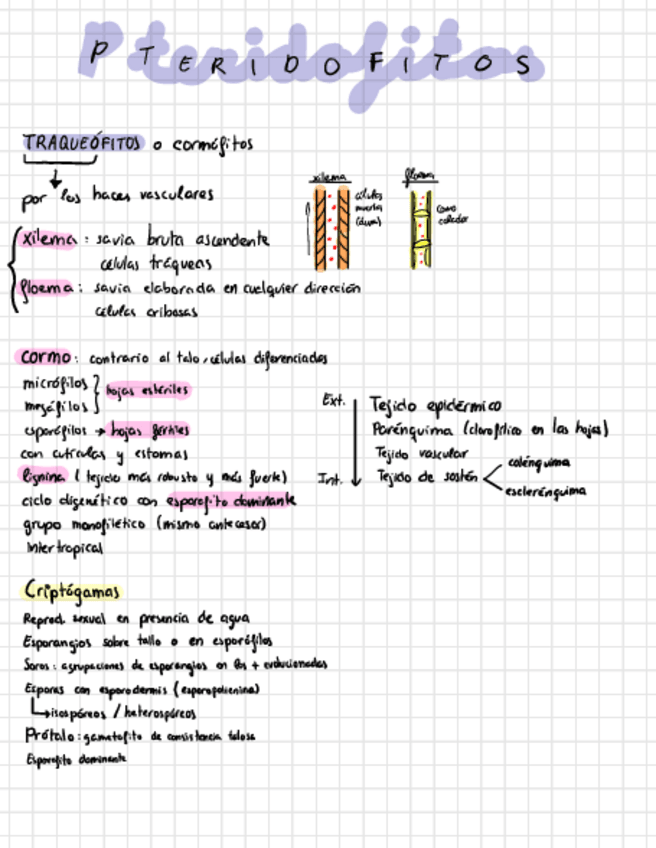 PTERIDOFITOS
Pteridofitos
TRAQUEÓFITOS o cormófitos
por los haces vasculares
xilema : savia bruta ascendente
células tráqueas
floema : savia elaborada en cualquier dirección
células cribosas
xilema
células
muertas
floema
como
colador
cormo : contrario al talo, células diferenciadas
micrófilos
megáfilos
hojas estériles
esporófilos → hojas fértiles
con cutículas y estomas
lignina ( tejido más robusto y más fuerte)
ciclo digenético con esporofito dominante
grupo monofilético (mismo antecesor)
Intertropical
Ext.
Int.
Tejido epidérmico
Parénquima (clorofílico en las hojas)
Tejido vascular
Tejido de sostén
colénquima
esclerénquima
Criptógamas
Reprod. sexual en presencia de agua
Esporangios sobre tallo o en esporófilos
Soros : agrupaciones de esporangios en los + evolucionados
Esporas con esporodermis (esporopolenina)
isospóreos / heterospóreos
Prótalo : gametofito de consistencia talosa
Esporofito dominante